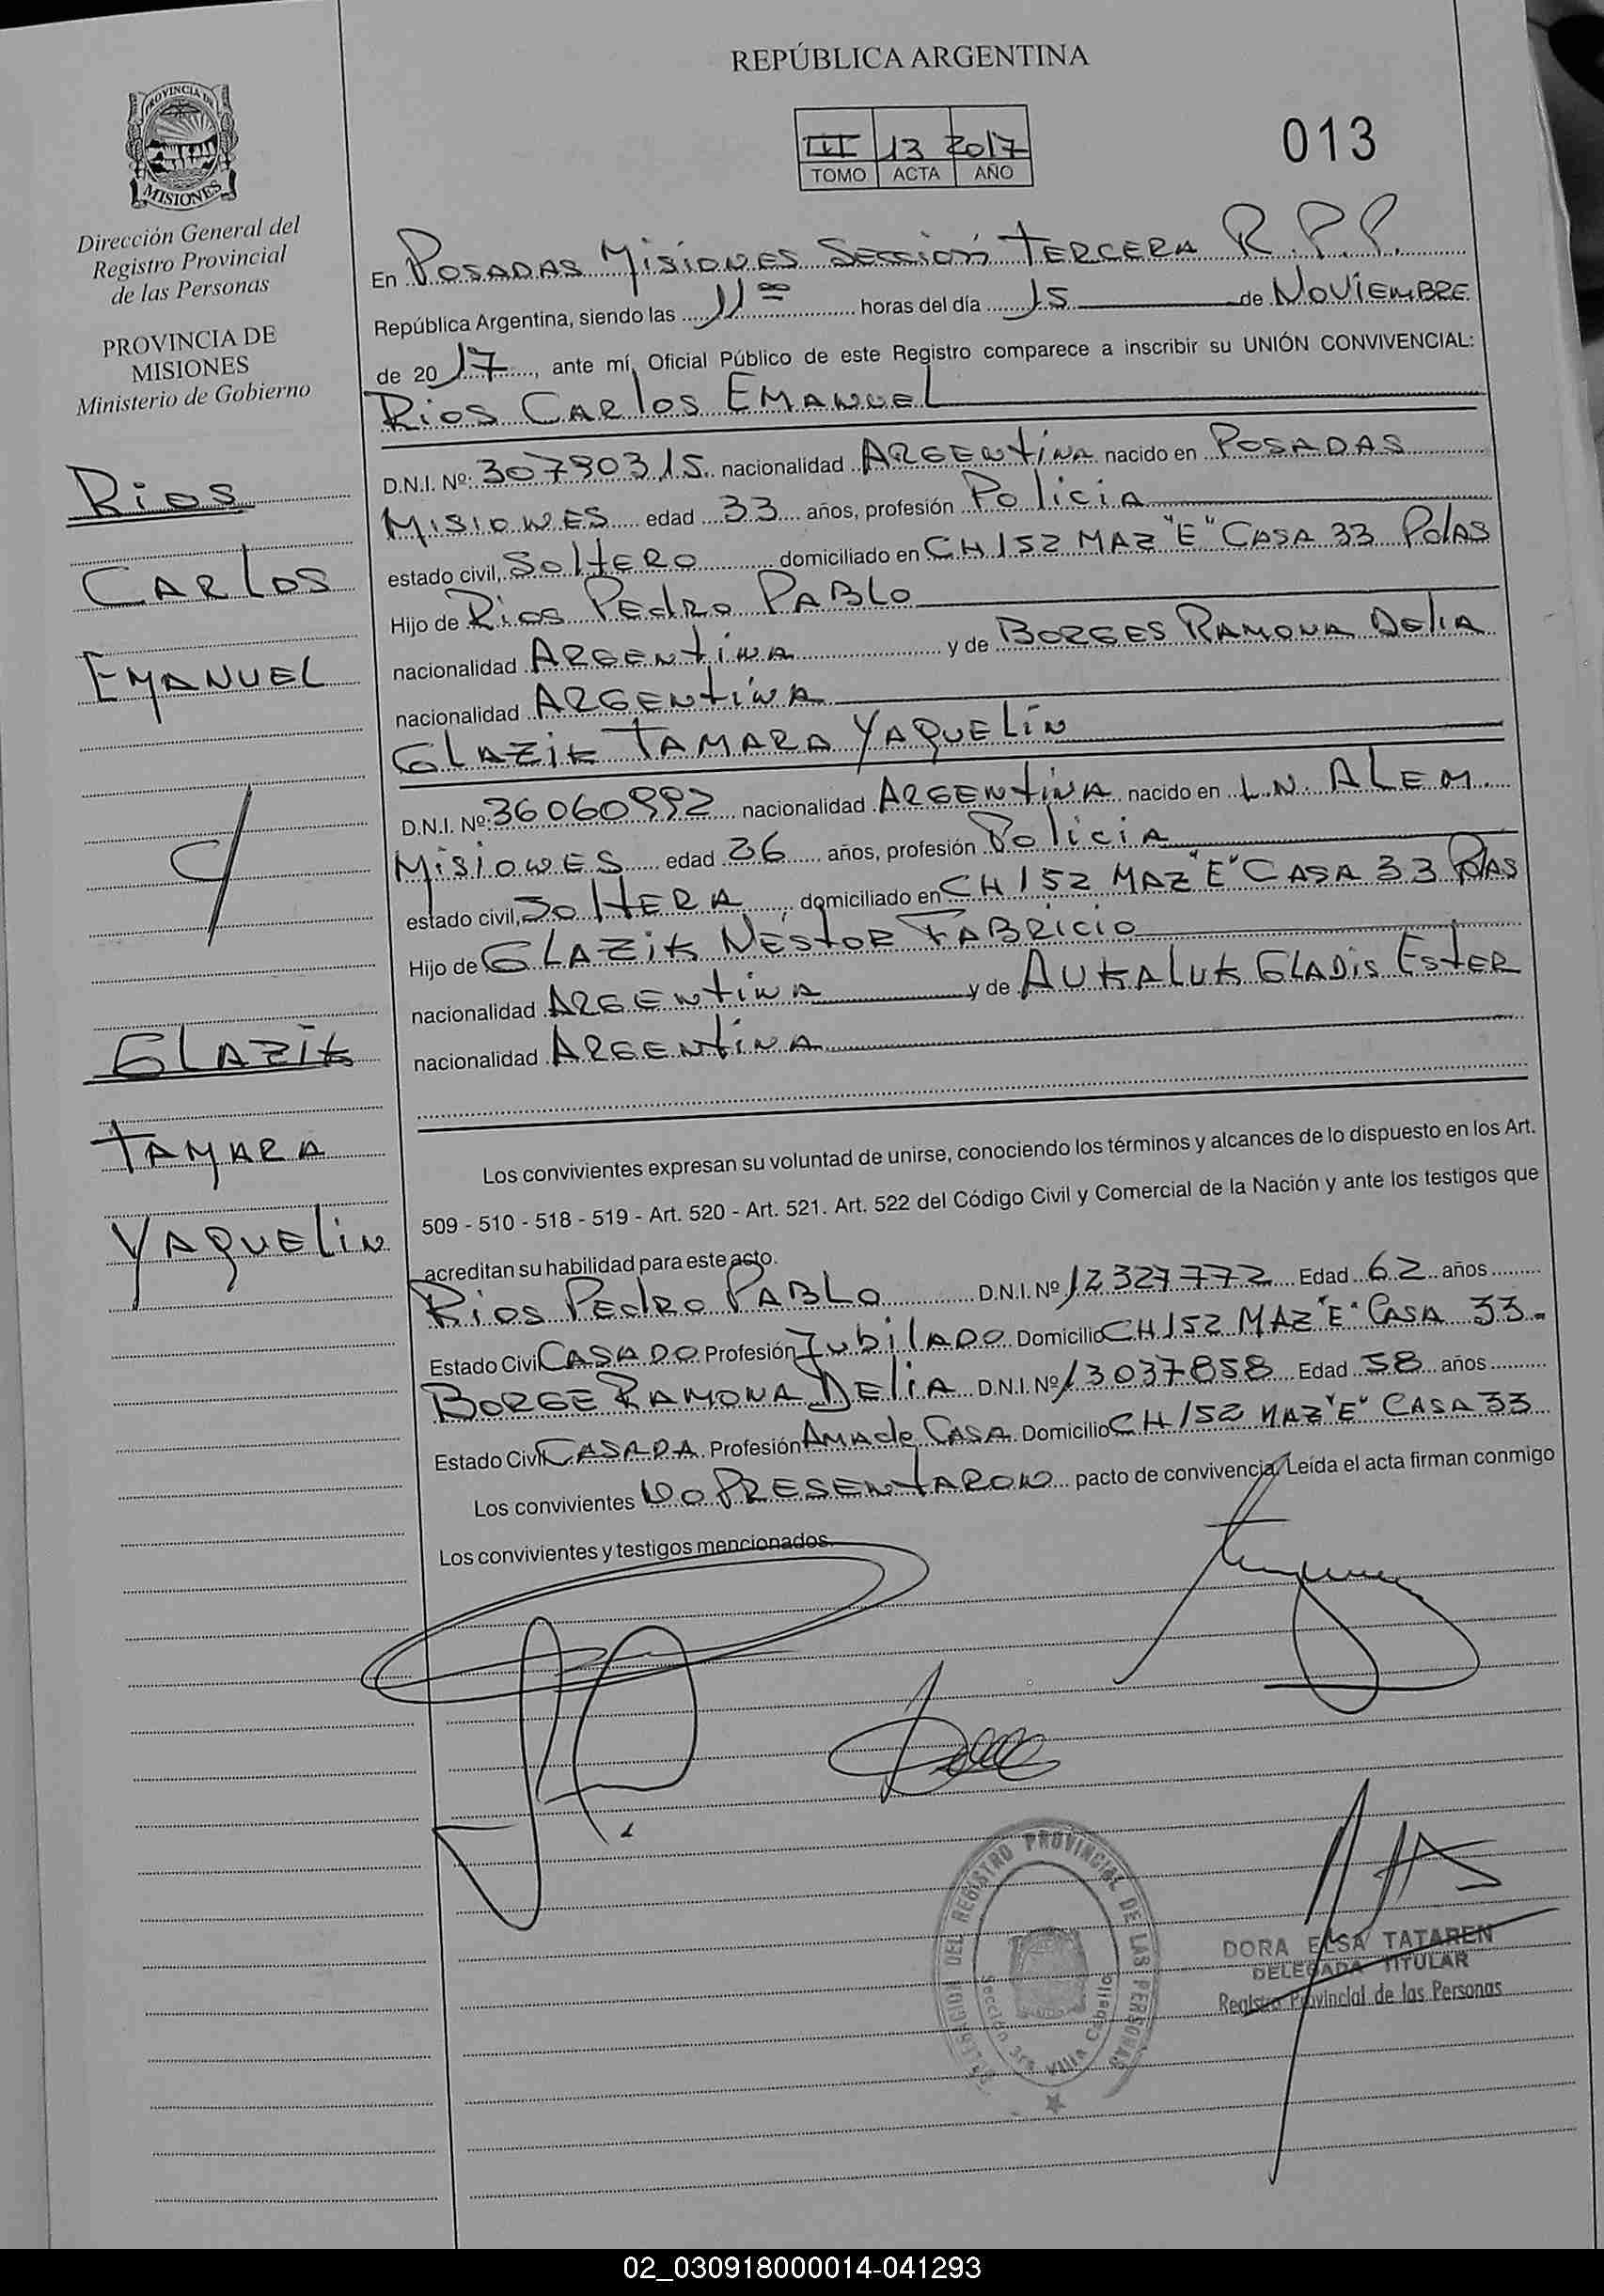 REPÚBLICA ARGENTINA
III 13 2017
TOMO ACTA AÑO
013
PROVINCIA DE
MISIONES
Dirección General del
Registro Provincial
de las Personas
PROVINCIA DE
MISIONES
Ministerio de Gobierno
Rios
CARlos
EMANUEL
c/
GLAZIK
TAMARA
YAQUELiN
En POSADAS MISIONES SECCIÓN TERCERA R.P.P.
República Argentina, siendo las 11 00 horas del día 15 de NOVIEMBRE
de 2017, ante mí, Oficial Público de este Registro comparece a inscribir su UNIÓN CONVIVENCIAL:
Rios CARlos EMANUEL
D.N.I. Nº: 30790315 nacionalidad ARGENtiNA nacido en POSADAS
MISIONES edad 33 años, profesión Policia
estado civil, SoltERO domiciliado en CH 152 MAZ "E" CASA 33 PdAS
Hijo de Rios PEdRO PABLO
nacionalidad ARGENtiNA y de BORGES RAMONA DEliA
nacionalidad ARGENtiNA
GLAZIK TAMARA YAQUELiN
D.N.I. Nº: 36060992 nacionalidad ARGENtiNA nacido en L.N. ALEM.
MISIONES edad 26 años, profesión Policia
estado civil, SoltERA, domiciliado en CH 152 MAZ "E" CASA 33 PdAS
Hijo de GLAZIK NÉStOR FABRICIO
nacionalidad ARGENtiNA y de AUKALUK GLADIS EStER
nacionalidad ARGENtiNA
Los convivientes expresan su voluntad de unirse, conociendo los términos y alcances de lo dispuesto en los Art.
509 - 510 - 518 - 519 - Art. 520 - Art. 521. Art. 522 del Código Civil y Comercial de la Nación y ante los testigos que
acreditan su habilidad para este acto.
Rios PEdRO PABLO D.N.I. Nº 12327772 Edad 62 años
Estado Civil CASADO Profesión JubilADO Domicilio CH 152 MAZ "E" CASA 33.
BORGE RAMONA DEliA D.N.I. Nº 13037858 Edad 58 años
Estado Civil CASADA Profesión AMA de CASA Domicilio CH 152 MAZ "E" CASA 33
Los convivientes NO PRESENtARON pacto de convivencia. Leída el acta firman conmigo
Los convivientes y testigos mencionados.
DELEGACION DEL REGISTRO PROVINCIAL DE LAS PERSONAS
Sección 3ra Villa Cabello
DORA ELSA TATAREN
DELEGADA TITULAR
Registro Provincial de las Personas
02_030918000014-041293